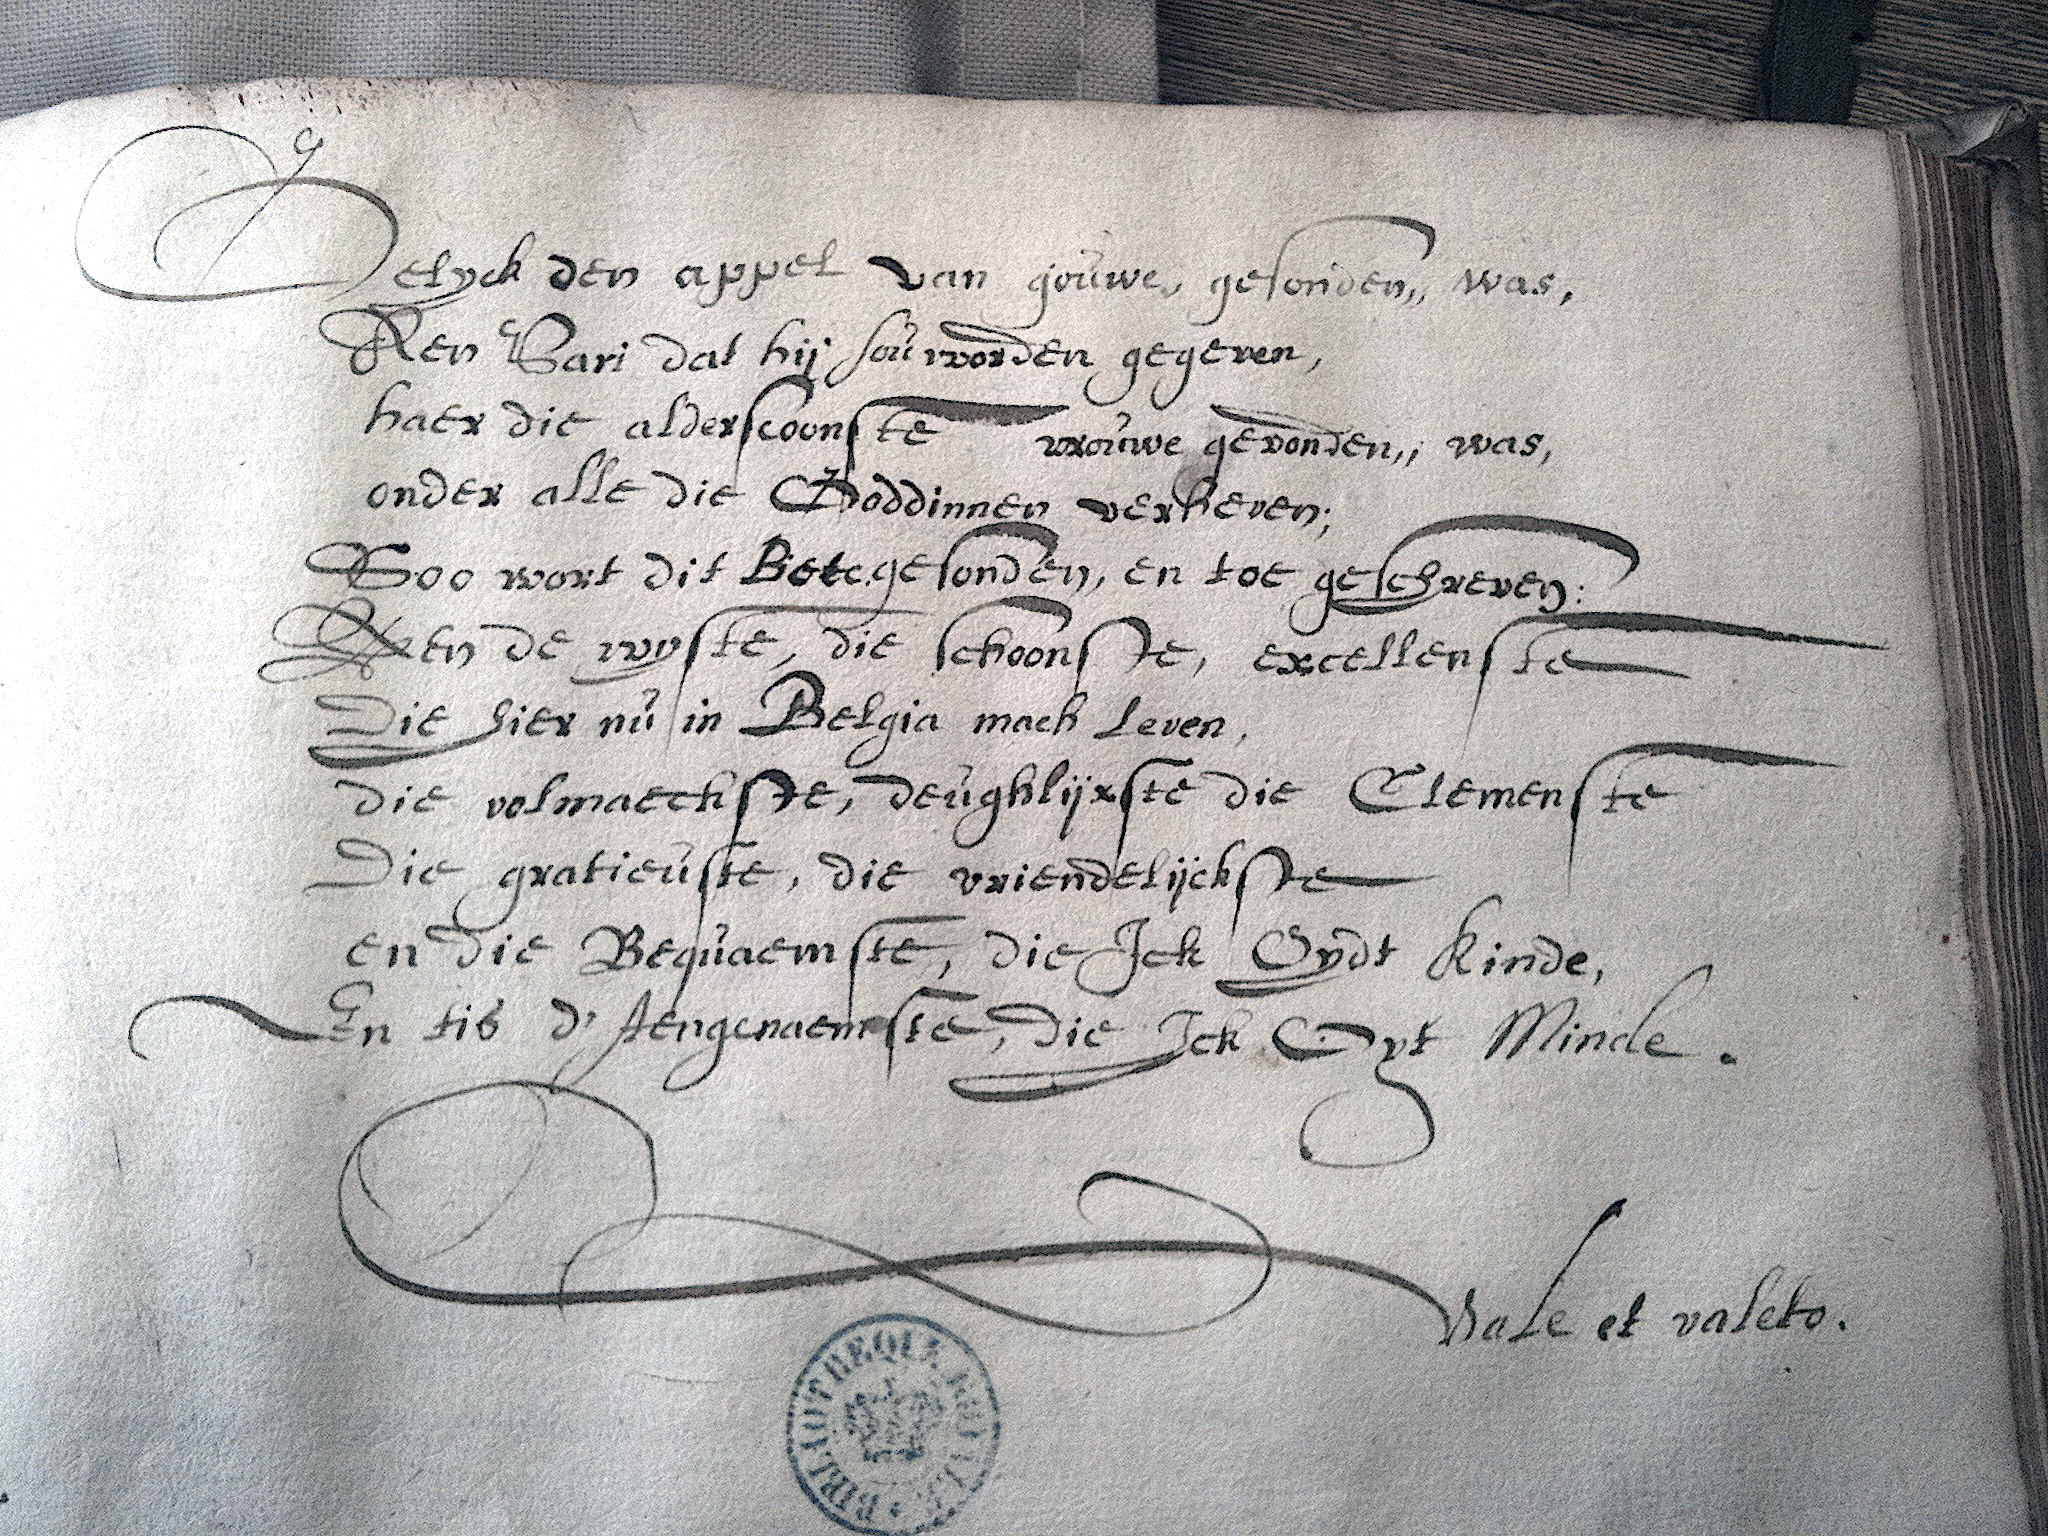 Gelyck den appel van goúwe,, gesonden,, was,
Aen Pari dat hij soú worden gegeven,
haer die alderscoonste vroúwe gevonden,, was,
onder alle die Goddinnen verheven;
Soo wort dit Betc. gesonden, en toe geschreven:
Aen de wyste, die schoonste, excellenste
Die hier nú in Belgia mach leven,
die volmaeckste, deúghlijxste die Clemenste
Die gratieúste, die vriendelijckste
en die Beqúaemste, die Ick Oydt kinde,
En tis d'Aengenaemste, die Ick Oyt Minde.
Vale et valeto.
BIBLIOTHEQUE ROYALE